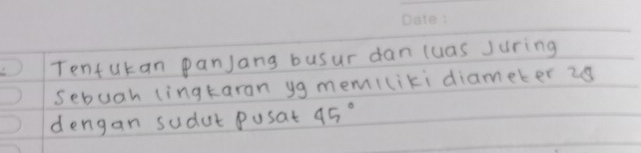 Date :
Tentukan panjang busur dan luas Juring
Sebuah lingkaran yg memiliki diameter 28
dengan sudut pusat 45°